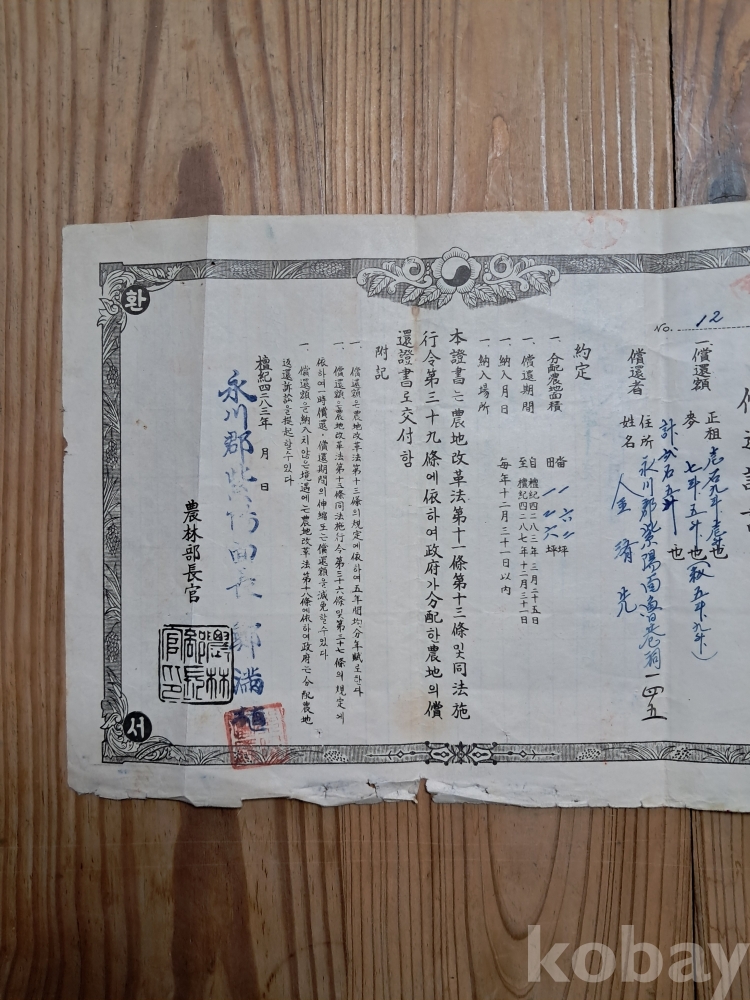 환
서
No. 12
一. 償還額
正租 壱石九斗壱升也
麥 七斗五升也
計 弐石五斗也
償還者
住所 永川郡紫陽面魯巷洞一四五
姓名
約定
一. 分配農地面積
畓 坪
田 坪
一. 償還期間
自 檀紀四二八三年 三月二十五日
至 檀紀四二八七年十二月三十一日
一. 納入月日 每年十二月三十一日以內
一. 納入場所
本證書는 農地改革法第十一條第十三條 및 同法施
行令第三十九條에 依하여 政府가 分配한 農地의 償
還證書로 交付함
附記
一. 償還額은 農地改革法第十三條의 規定에 依하여 五年間均分年賦로한다
一. 償還額을 農地改革法第十三條同法施行令第三十六條 및 第三十七條의 規定에
依하여 一時償還, 償還期間의 伸縮 또는 償還額을 減免할수있다
一. 償還額을 納入치않은 境遇에는 農地改革法第十八條에 依하여 政府는 分配農地
返還訴訟을 提起할수있다
檀紀四二八三年 月 日
永川郡紫陽面長 鄭満植
農林部長官
農林部長官印
kobay